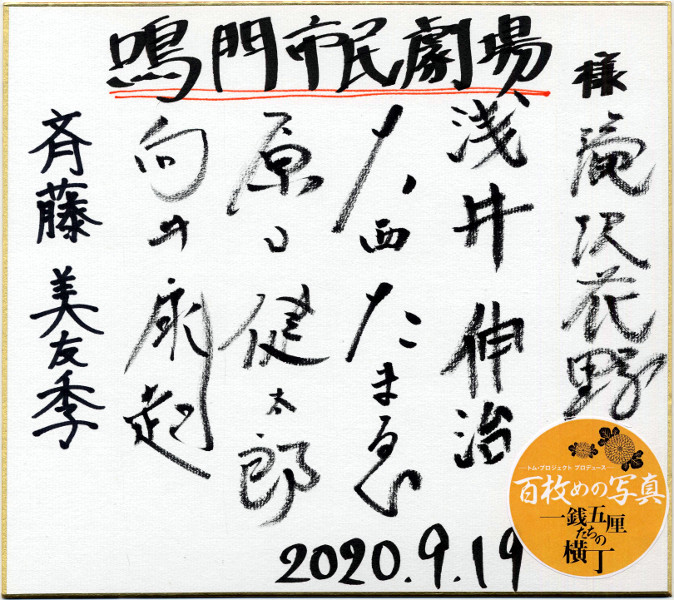 鳴門市民劇場 様
滝沢花野
浅井 伸治
大西 たま恵
原口 健太郎
向井 康起
斉藤 美友季
2020.9.19
トム・プロジェクト プロデュース
百枚めの写真
一銭五厘
たちの
横丁